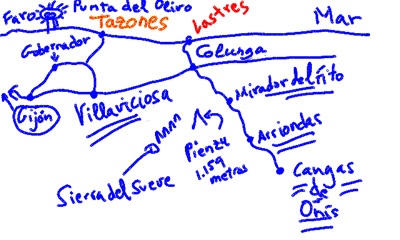 Faro
Punta del Olivo
Tazones
Lastres
Mar
Gobernador
Colunga
Mirador del Fito
Gijón
Villaviciosa
Arriondas
Pienzu
1.159
metros
Sierra del Sueve
Cangas
de
Onís